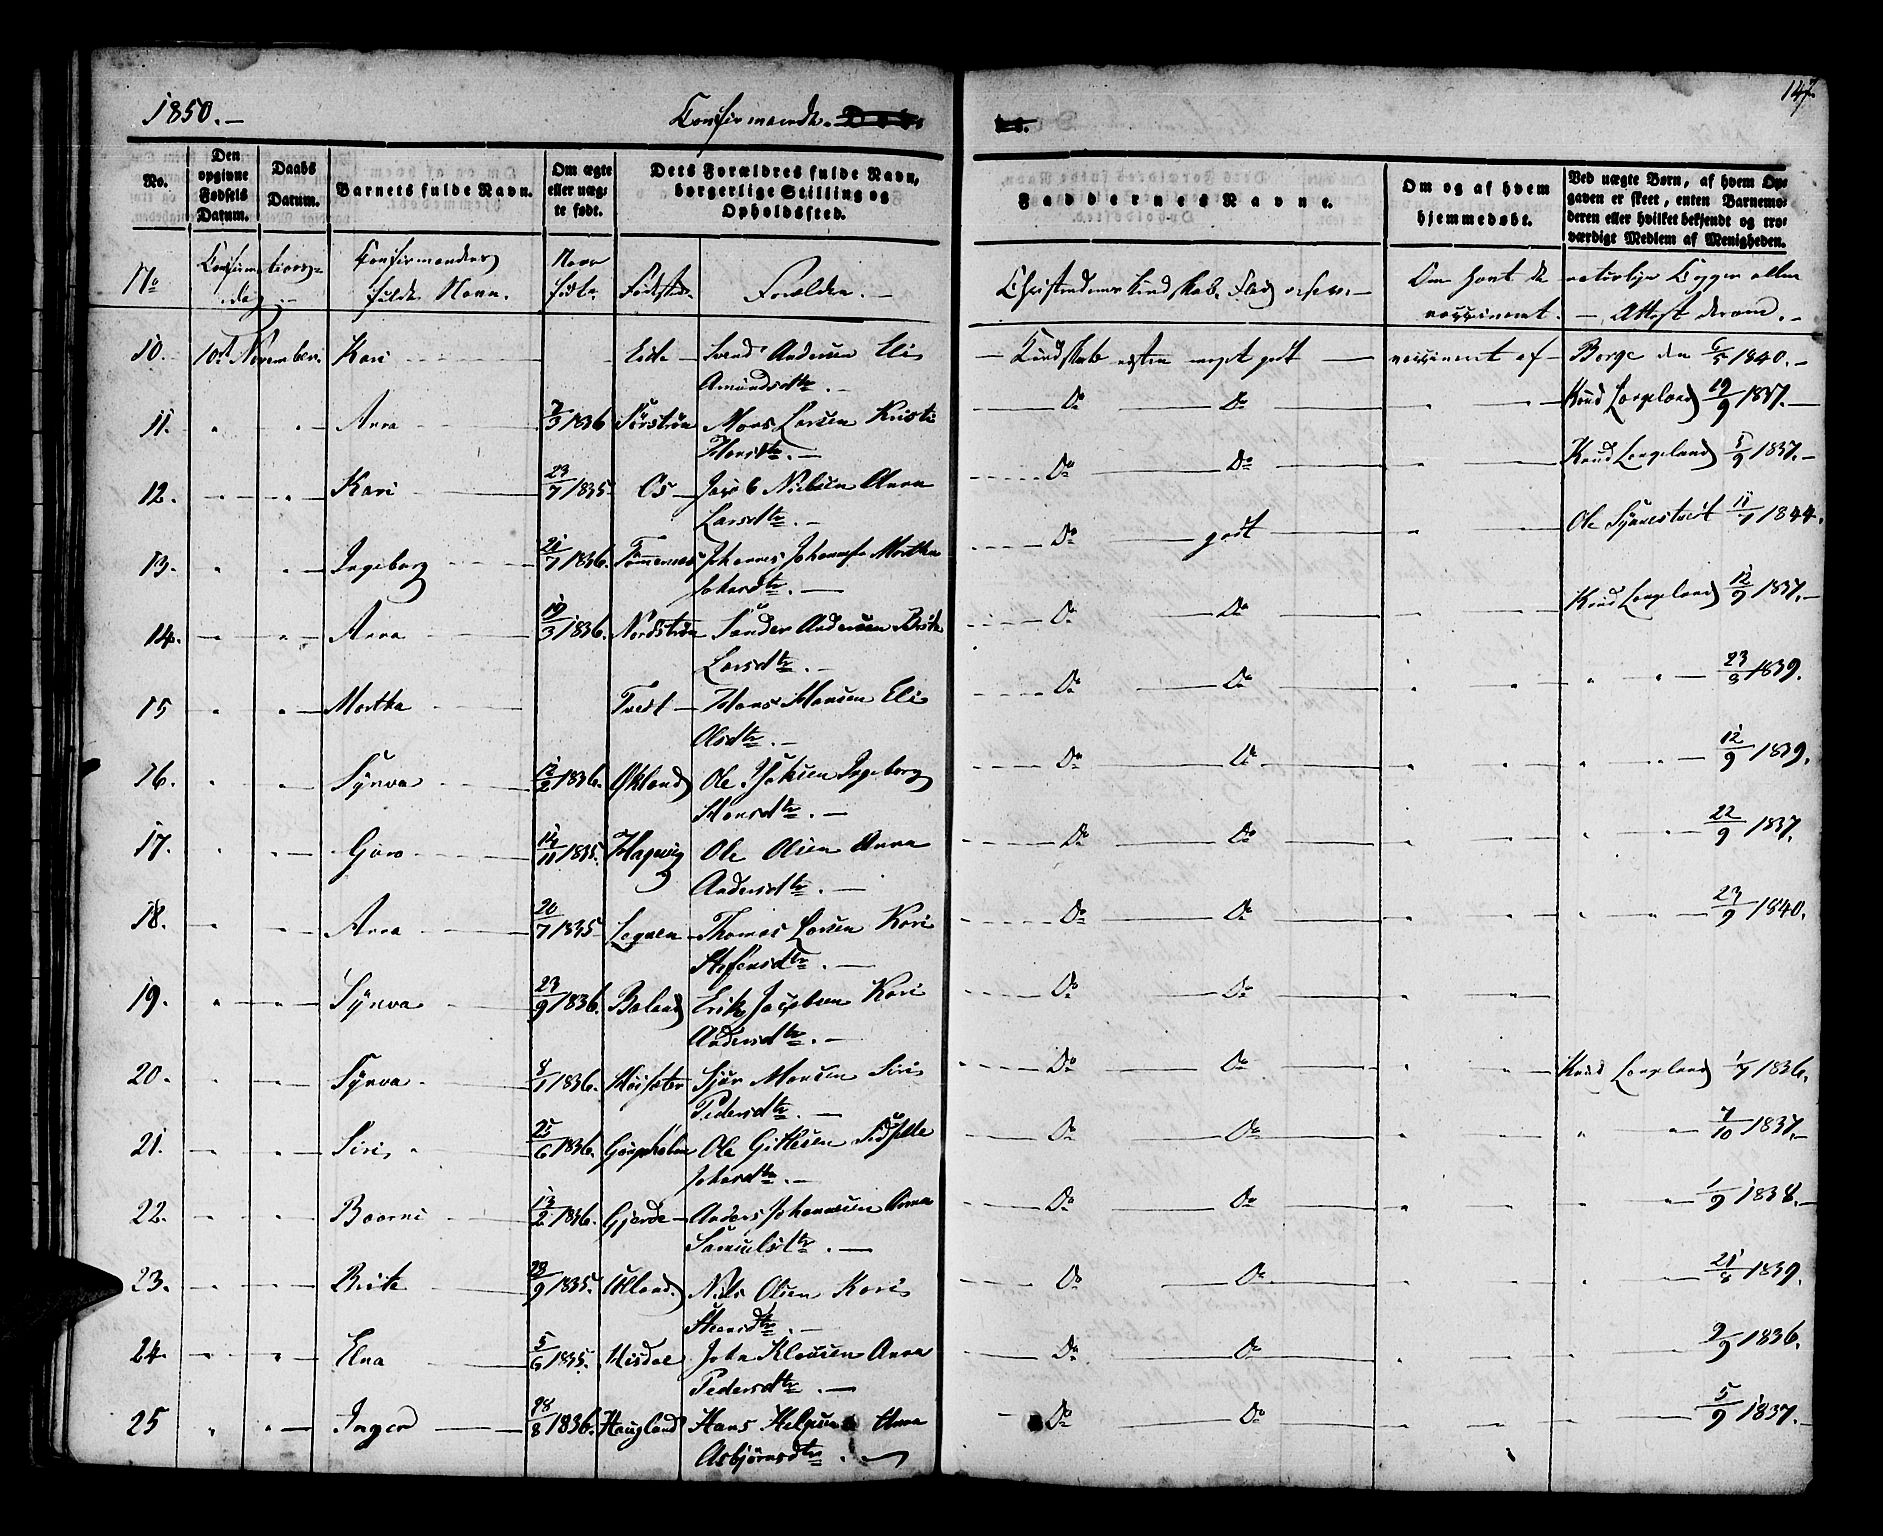 147.
1850.- Confirmerede. Døbte.
No. Den opgivne Fødsels Datum. Daabs Datum. Barnets fulde Navn. Om ægte eller uægte født. Dets Forældres fulde Navn, borgerlige Stilling og Opholdssted. Faddernes Navne. Om og af hvem hjemmedøbt. Ved uægte Børn, af hvem Opgaven er skeet, enten Barnemoderen eller hvilket bekjendt og troværdigt Medlem af Menigheden.
No Confirmations dag.- Confirmandens fulde Navn. Naar født. Fødested. Forældre.- Christendomskundskab. Flid Om havt de naturlige Kopper eller vaccineret. - Attest derom.-
10. 10de November. Kari Svend Andersen Eli - Kundskab meget godt vaccineret af Borge den 6/5 1840.-
Amundsdtr.-
11. " " Anna 7/3 1836 Sørstrøn Mons Larsen Kristi Do Do " " Knud Langeland 19/9 1837.-
Hansdtr.-
12. " " Kari 23/7 1835. Os Jacob Nielsen Anna Do Do " " Knud Langeland 5/9 1837.-
Larsdtr.-
13. " " Ingeborg 21/7 1836. Tømernes Johannes Martha Do godt " " Ole 11/7 1844.
Johansdtr.-
14. " " Anna 19/3 1836. Nordstrøn Sander Andersen Brite Do Do " " Knud Langeland 12/9 1837.-
Larsdtr.-
15 " " Martha Tveit Hans Monsen Eli Do Do " " " " 23/8 1839.
Olsdtr.-
16. " " Synva 12/2 1836. Økland Ole Ingeborg Do Do " " " " 12/9 1839.
Hansdtr.-
17. " " Guro 14/11 1835. Hagevig Ole Olsen Anna Do Do " " " " 22/9 1837.
Andersdtr.-
18. " " Anna 20/7 1835 Thomas Larsen Kari Do Do " " " " 23/9 1840.
Stefensdtr.-
19. " " Synva 23/9 1836. Baland Erik Jacobsen Kari Do Do " "
Andersdtr.-
20. " " Synva 8/1 1836. Høisæter Sjur Monsen Siri Do Do " " Knud Langeland 1/7 1836.
Pedersdtr.-
21. " " Siri 25/6 1836. Ole Gitlesen Do Do " " " " 7/10 1837.-
Johansdtr.-
22. " " 13/2 1836. Gjerde Anders Johannesen Anna Do Do " " " " 1/9 1838.-
Samuelsdtr.-
23. " " Brite 28/9 1835. Økland Niels Olsen Kari Do Do " " " " 21/8 1839.
24. " " Elna 5/6 1835. Misdal John Klausen Anna Do Do " " " " 2/9 1836.
Pedersdtr.-
25 " " Inger 28/8 1836. Haugland Hans Helgesen Anna Do Do " " " " 5/9 1837.-
Asbjørnsdtr.